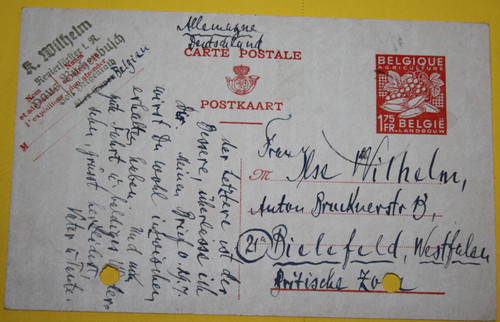 K. Wilhelm
Belgien
Allemagne
Deutschland
CARTE POSTALE
POSTKAART
BELGIQUE
AGRICULTURE
1,75
FR.
BELGIË
LANDBOUW
M
Frau Ilse Wilhelm,
Anton Brucknerstr 13,
21a Bielefeld, Westfalen
Britische Zone
der letztere ist der
bessere, überlasse ich
Dir. Meinen Brief v. N.7.
wirst Du wohl inzwischen
erhalten haben. Und nun
gute Fahrt u. baldiges
sehen, grüsst herzlichst
Vater u. Tante.